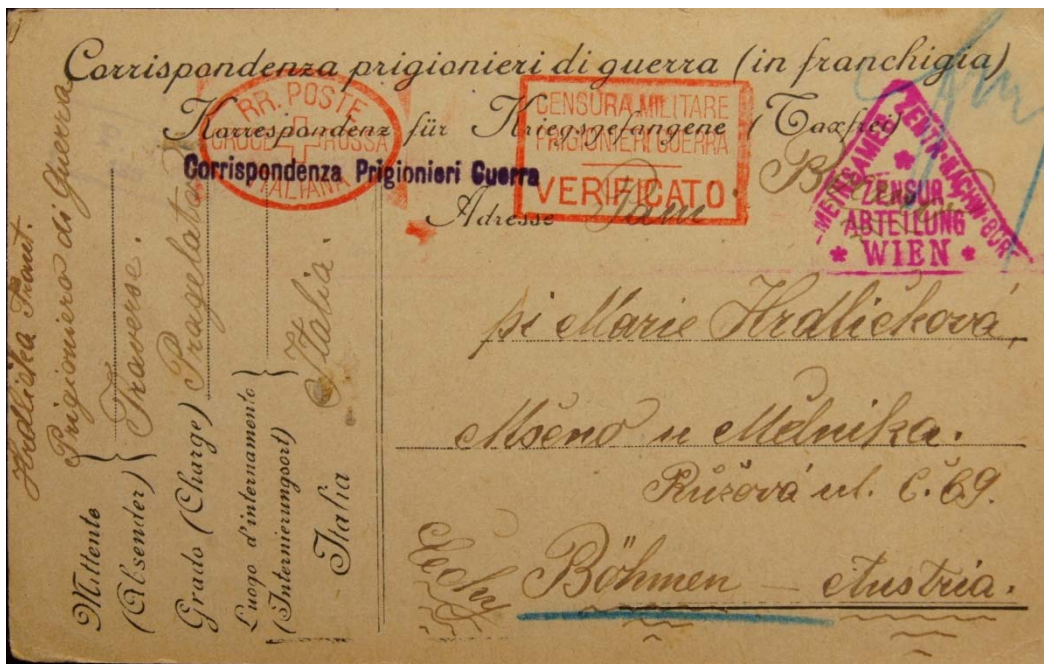 Corrispondenza prigionieri di guerra (in franchigia)
Korrespondenz für Kriegsgefangene (Taxfrei)
RR. POSTE
CROCE ROSSA
ITALIANA
CENSURA MILITARE
PRIGIONIERI GUERRA
VERIFICATO
Corrispondenza Prigionieri Guerra
ZENTR. NACHW. BÜR
ZENSUR
ABTEILUNG
WIEN
Adresse
pí Marie Hrdličková,
Mšeno u Mělníka.
Růžová ul. č. 69.
Čechy Böhmen — Austria.
Hrdlička Frant.
Prigioniero di Guerra
Mittente
(Absender)
Traverse.
Grado (Charge) Pragelato
Luogo d'internamento
(Internierungsort)
Italia.
Italia